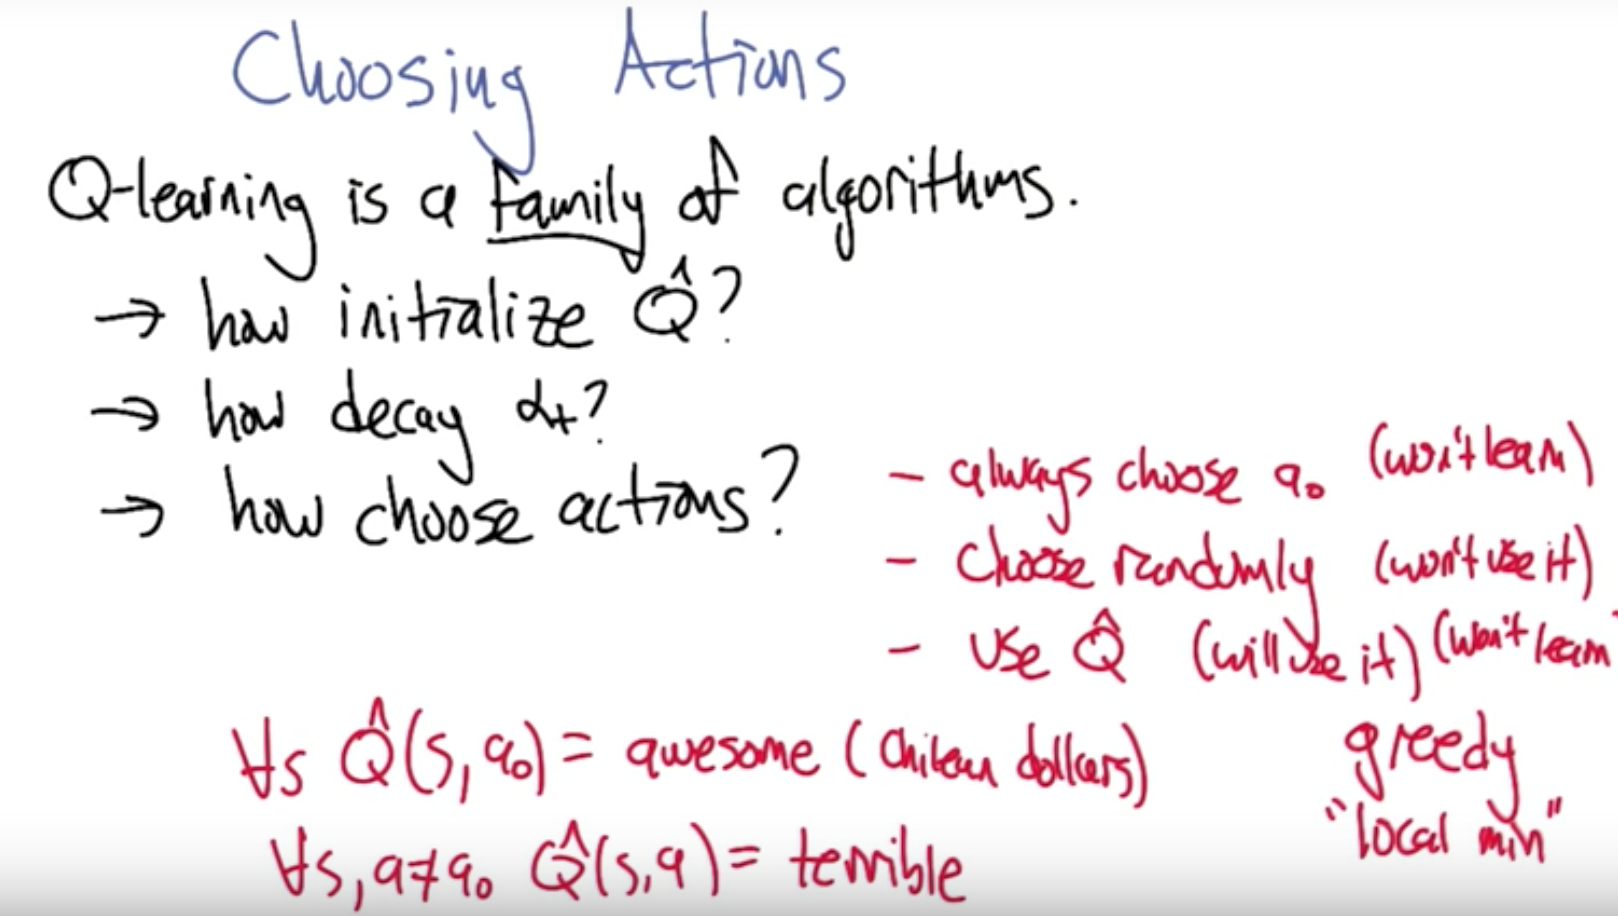 Choosing Actions
Q-learning is a family of algorithms.
→ how initialize Q̂?
→ how decay αt?
→ how choose actions?
- always choose a₀ (won't learn)
- choose randomly (won't use it)
- use Q̂ (will use it) (won't learn
greedy
"local min"
∀s Q̂(s, a₀) = awesome (Chilean dollars)
∀s, a≠a₀ Q̂(s,a) = terrible